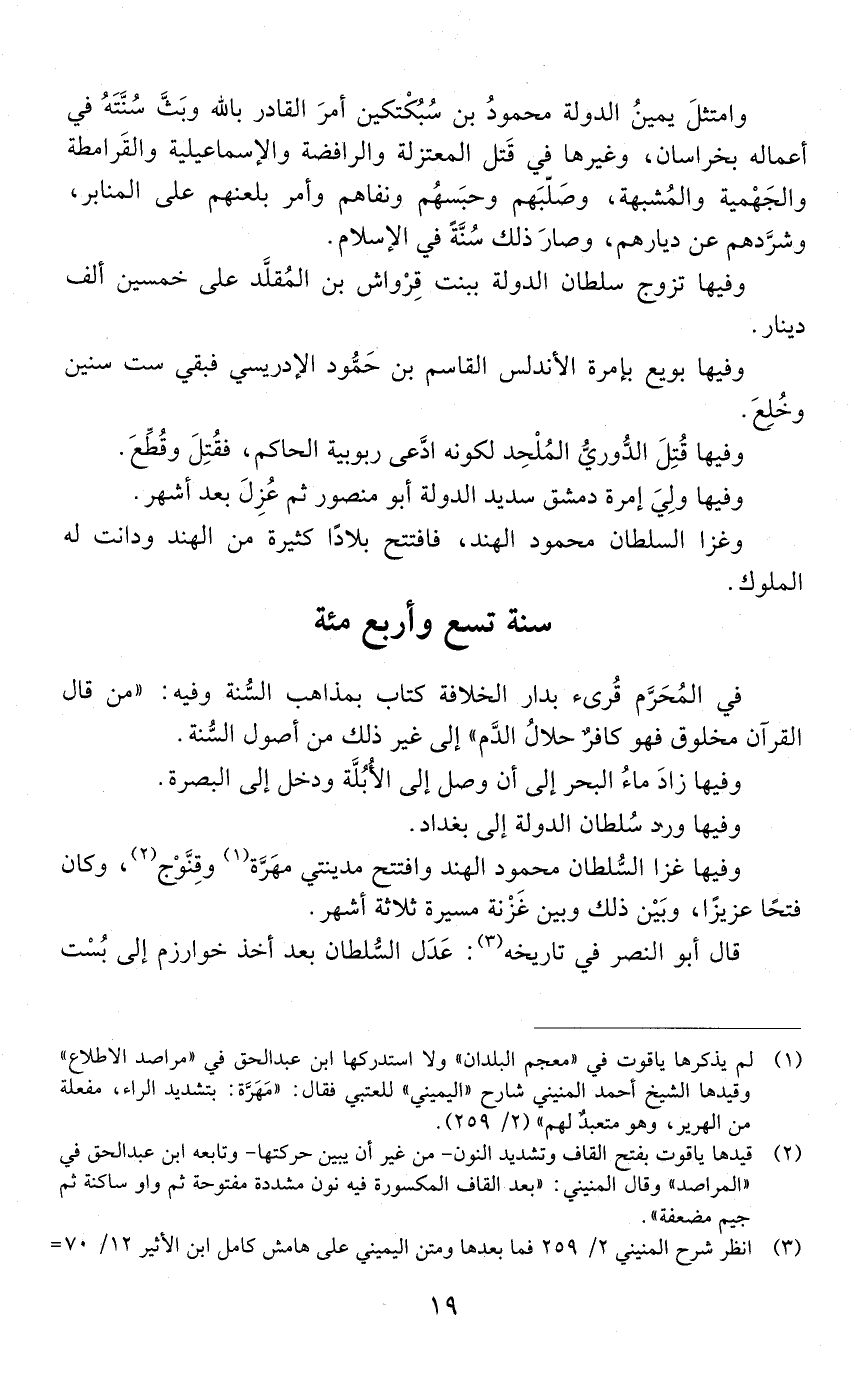 وامتثلَ يمينُ الدولة محمودُ بن سُبُكْتكين أمرَ القادر بالله وبَثَّ سُنَّتَهُ في
أعماله بخراسان، وغيرها في قَتل المعتزلة والرافضة والإسماعيلية والقَرامطة
والجَهْمية والمُشبهة، وصَلَّبَهم وحبَسهُم ونفاهم وأمر بلعنهم على المنابر،
وشرَّدهم عن ديارهم، وصارَ ذلك سُنَّةً في الإسلام.
وفيها تزوج سلطان الدولة ببنت قِرْواش بن المُقلَّد على خمسين ألف
دينار.
وفيها بويع بإمرة الأندلس القاسم بن حَمُّود الإدريسي فبقي ست سنين
وخُلِعَ.
وفيها قُتِلَ الدُّوريُّ المُلْحِد لكونه ادَّعى ربوبية الحاكم، فقُتِلَ وقُطِّعَ.
وفيها ولِيَ إمرة دمشق سديد الدولة أبو منصور ثم عُزِلَ بعد أشهر.
وغزا السلطان محمود الهند، فافتتح بلادًا كثيرة من الهند ودانت له
الملوك.
سنة تسع وأربع مئة
في المُحَرَّم قُرىء بدار الخلافة كتاب بمذاهب السُّنة وفيه: «من قال
القرآن مخلوق فهو كافرٌ حلالُ الدَّم» إلى غير ذلك من أصول السُّنة.
وفيها زادَ ماءُ البحر إلى أن وصل إلى الأُبُلَّة ودخل إلى البصرة.
وفيها ورد سُلطان الدولة إلى بغداد.
وفيها غزا السُّلطان محمود الهند وافتتح مدينتي مهَرَّة(١) وقِنَّوْج(٢)، وكان
فتحًا عزيزًا، وبَيْن ذلك وبين غَزْنة مسيرة ثلاثة أشهر.
قال أبو النصر في تاريخه(٣): عَدَل السُّلطان بعد أخذ خوارزم إلى بُسْت
(١) لم يذكرها ياقوت في «معجم البلدان» ولا استدركها ابن عبدالحق في «مراصد الاطلاع»
وقيدها الشيخ أحمد المنيني شارح «اليميني» للعتبي فقال: «مَهَرَّة: بتشديد الراء، مفعلة
من الهرير، وهو متعبدٌ لهم» (٢/ ٢٥٩).
(٢) قيدها ياقوت بفتح القاف وتشديد النون- من غير أن يبين حركتها- وتابعه ابن عبدالحق في
«المراصد» وقال المنيني: «بعد القاف المكسورة فيه نون مشددة مفتوحة ثم واو ساكنة ثم
جيم مضعفة».
(٣) انظر شرح المنيني ٢/ ٢٥٩ فما بعدها ومتن اليميني على هامش كامل ابن الأثير ١٢/ ٧٠=
١٩